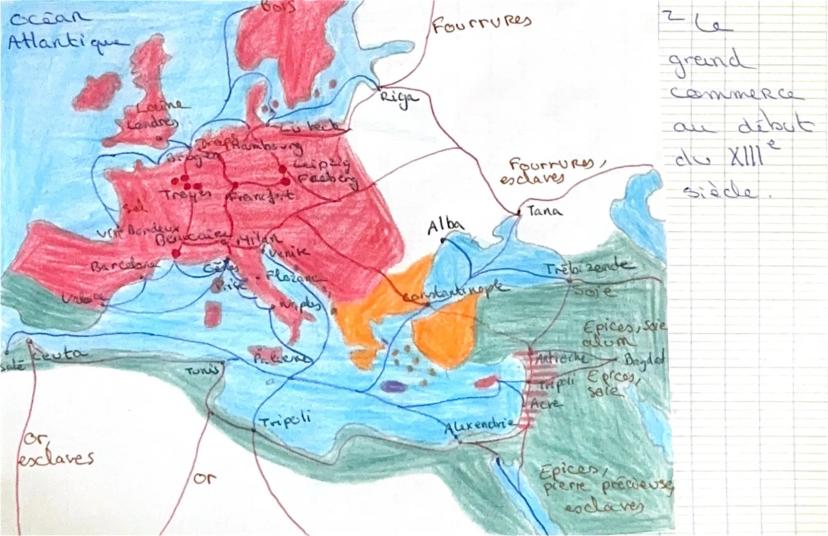 Océan
Atlantique
Bois
Fourrures
2 Le
grand
commerce
au début
du XIIIe
siècle.
Riga
Laine
Londres
Lubeck
Hambourg
Bruges
Leipzig
Freiberg
Troyes
Francfort
Fourrures,
esclaves
Tana
Sel
Vin Bordeaux
Beaucaire
Milan
Venise
Alba
Barcelone
Gênes
Pise
Florence
Naples
Constantinople
Trébizonde
Soie
Ceuta
Salé
Palerme
Tunis
Epices, soie
alun
Antioche
Bagdad
Tripoli
Epices,
soie
Acre
Tripoli
Alexandrie
Or,
esclaves
or
Epices,
pierre précieuse,
esclaves